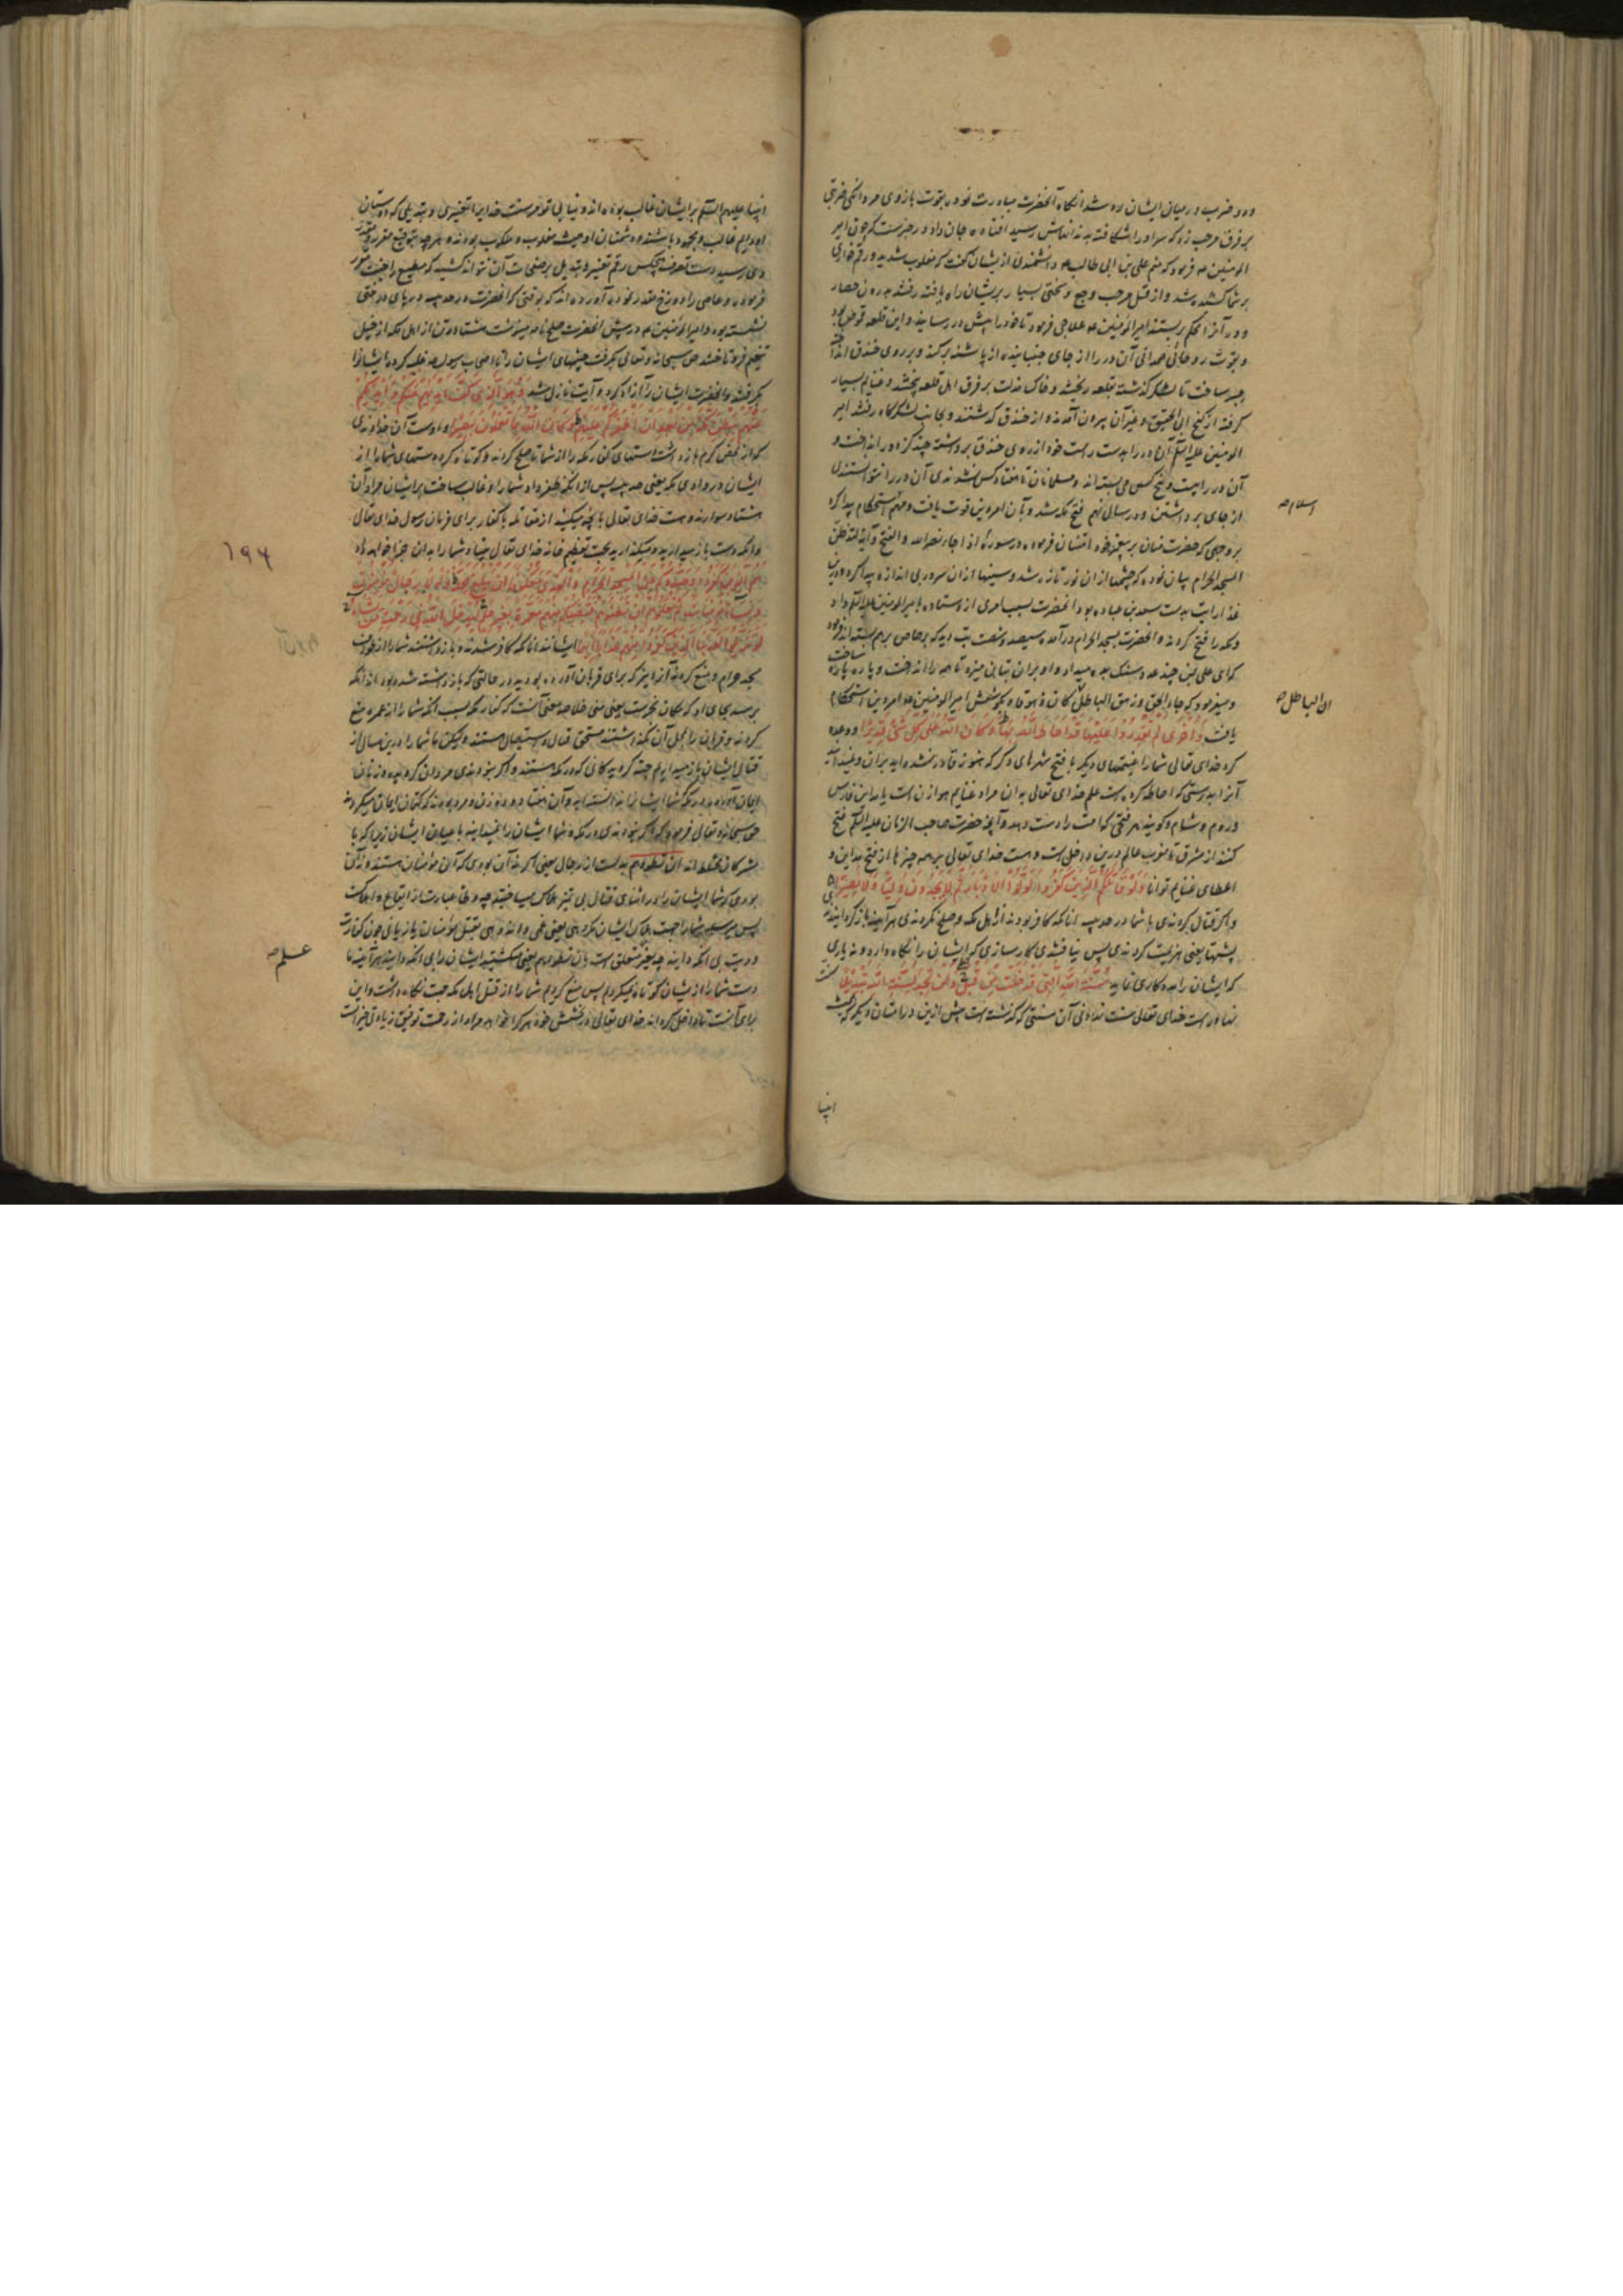 و دو ضرب در میان ایشان رد شد انگاه آنحضرت مبادرت نموده بقوت بازوی مردانگی ضربتی
بر فرق مرحب زد که سر او را شکافته به دندانهاش رسید افتاده جان داد و در خبرست که چون امیر
المومنین فرمود که منم علی بن ابی طالب دانشمندی از یشان گفت که مغلوب شدید و رقم خواری
بر شما کشیده شد و از قتل مرحب وجع و سختی بسیار بر یشان راه یافته رفتند بدرون حصار
و در آنرا محکم بر بستند امیر المومنین علاجی فرمود تا خود را پیش در رسانید و این قلعه قوطی بود
و بقوت روحانی صمدانی آن در را از جای جنبانیده از پاشنه بر کند و بر روی خندق انداخته
جسر ساخت تا لشکر گذشته بقلعه ریختند و خاک مذلت بر فرق اهل قلعه پیختند و غنایم بسیار
گرفته از گنج ابی الحقیق و غیر آن بیرون آمدند و از خندق گذشتند و بجانب لشکرگاه رفتند امیر
المومنین علیه السلام آن در را بدست راست خود از روی خندق برداشته چند گز دور انداخت و
آن در را بیست و پنج کس می بسته اند و مسلمانان تا هفتاد کس نشدندی آن در را نتوانستندی
از جای برداشتن و در سال نهم فتح مکه شد و بآن امر دین قوت یافت و مهم استحکام پیدا کرد
اسلام
بروجهی که حضرت منان بر پیغمبر خود امتنان فرموده در سوره اذا جاء نصر الله والفتح و آیه لتدخلن
المسجد الحرام بیان نموده که چشمها از ان نور تازه شد و سینها از ان سرور بی اندازه پیدا کرد و درین
غذا رایت بدست سعد بن عباده بود آنحضرت بسبب امری از و ستاده بامیر المومنین علیه السلام داد
و مکه را فتح کردند و آنحضرت بمسجد الحرام درآمده سیصد و شصت بت دید که برصاص برهم بسته اند فرمود
که ای علی بمن چند عدد سنگ بده میداد و او بر ان بتان میزد تا همه را انداخت و پاره پاره ساخت
و میفرمود که جاء الحق و زهق الباطل کان زهوقا و بکوشش امیر المومنین امر دین استحکام
ان الباطل
یافت وَاُخْرَی لَمْ تَقْدِرُوا عَلَیْهَا قَدْ اَحَاطَ اللَّهُ بِهَا وَکَانَ اللَّهُ عَلَی کُلِّ شَیْءٍ قَدِیرًا و وعده
کرد خدای تعالی شما را غنیمتهای دیگر با فتح شهرهای دیگر که هنوز قادر نشده اید بران و نمیدانید
آنرا بدرستی که احاطه کرده است علم خدای تعالی به ان مراد غنایم هوازن است یا مداین فارس
و روم و شام و گویند هر فتحی که امت را دست دهد و آنچه حضرت صاحب الزمان علیه السلام فتح
کنند از مشرق تا مغرب عالم درین داخل است و هست خدای تعالی بر همه چیزها از فتح مداین و
اعطای غنایم توانا وَلَوْ قَاتَلَکُمُ الَّذِینَ کَفَرُوا لَوَلَّوُا الْاَدْبَارَ ثُمَّ لَا یَجِدُونَ وَلِیًّا وَلَا نَصِیرًا
و اگر قتال کردندی با شما در حدیبیه انانکه کافر بودند از اهل مکه و صلح نکردندی هر آینه باز گردانیدندی
پشتها یعنی هزیمت کردندی پس نیافتندی کارسازی که ایشان را نگاه دارد و نه یاری
که ایشان را مددکاری نماید سُنَّةَ اللَّهِ الَّتِی قَدْ خَلَتْ مِنْ قَبْلُ وَلَنْ تَجِدَ لِسُنَّةِ اللَّهِ تَبْدِیلًا سنت
نهاده است خدای تعالی سنت نهادنی آن سنتی که گذشته است پیش ازین در امتان دیگر که همیشه
انبیا
انبیا علیهم السلام بر ایشان غالب بوده اند و نیابی تو مر سنت خدایرا تغییری و تبدیلی که دوستان
او دایم غالب و بجهد باشند و دشمنان او همیشه مغلوب و منکوب بودند و هر چه بتوقیع مقرر و مقدر
وی رسید دست تصرف هیچکس رقم تغییر و تبدیل بر صفحات آن نتواند کشید که مطیع را جنت مقرر
فرموده و عاصی را دوزخ مقدر نموده آورده اند که بوقتی که آنحضرت در حدیبیه در پای درختی
نشسته بود و امیر المومنین در پیش آنحضرت صلح نامه مینوشت هشتاد تن از اهل مکه از جبل
تنعیم فرو تاختند حق سبحانه و تعالی بگرفت چشمهای ایشان را تا اصحاب رسول غلبه کرده ایشانرا
بگرفتند و آنحضرت ایشان را آزاد کرد و آیت نازل شد وَهُوَ الَّذِی کَفَّ اَیْدِیَهُمْ عَنْکُمْ وَاَیْدِیَکُمْ
عَنْهُمْ بِبَطْنِ مَکَّةَ مِنْ بَعْدِ اَنْ اَظْفَرَکُمْ عَلَیْهِمْ وَکَانَ اللَّهُ بِمَا تَعْمَلُونَ بَصِیرًا و اوست آن خداوندی
که از محض کرم بازداشت دستهای کفار مکه را از شما تا صلح کردند و کوتاه کرد دستهای شما را از
ایشان در وادی مکه یعنی حدیبیه پس از انکه ظفر داد شما را و غالب ساخت بر ایشان مراد آن
هشتاد سوارند و هست خدای تعالی بانچه میکنید از مقاتله با کفار برای فرمان رسول خدای تعالی
و انکه دست باز میدارید و میگذارید بجهت تعظیم خانه خدای تعالی بینا و شما را به ان جزا خواهد داد
۱۹۴
هُمُ الَّذِینَ کَفَرُوا وَصَدُّوکُمْ عَنِ الْمَسْجِدِ الْحَرَامِ وَالْهَدْیَ مَعْکُوفًا اَنْ یَبْلُغَ مَحِلَّهُ وَلَوْلَا رِجَالٌ مُؤْمِنُونَ
وَنِسَاءٌ مُؤْمِنَاتٌ لَمْ تَعْلَمُوهُمْ اَنْ تَطَئُوهُمْ فَتُصِیبَکُمْ مِنْهُمْ مَعَرَّةٌ بِغَیْرِ عِلْمٍ لِیُدْخِلَ اللَّهُ فِی رَحْمَتِهِ مَنْ یَشَاءُ
لَوْ تَزَیَّلُوا لَعَذَّبْنَا الَّذِینَ کَفَرُوا مِنْهُمْ عَذَابًا اَلِیمًا ایشانند انانکه کافر شدند و باز داشتند شما را از طواف
مسجد حرام و منع کردند آنرا نیز که برای قربان آورده بودید در حالتی که بازداشته شده بود از انکه
برسد بجای او که مکان نحرست یعنی منی خلاصه معنی آنست که کفار مکه بسبب انکه شما را از عمره منع
کردند و قربان را بمحل آن نگذاشتند مستحق قتال و استیصال هستند و لیکن ما شما را درین سال از
قتال ایشان باز میداریم چند گروه کانی که در مکه هستند و اگر نبودندی مردان گرویده و زنان
ایمان آورده در مکه شما ایشانرا ندانسته اید و آن هفتاد و دو زن و مرد بودند که کتمان ایمان میکردند
حق سبحانه و تعالی فرمود که اگر نبودندی در مکه و شما ایشان را نمیدانید باعیان ایشان زیرا که با
مشرکان مختلط اند ان تطؤهم بدلست از رجال یعنی اگر نه آن بودی که آن مؤمنان هستند و نه آن
بودی که شما ایشان را در اثنای قتال بی تمیز هلاک میساختید چه وطأ عبارت از ایقاع و اهلاکست
پس میرسید شما را جهت هلاک ایشان مکروهی یعنی غمی و اندوهی بقتل مؤمنان یا زیانی چون کفارت
علم
و دیت بی انکه دانید چه بغیر متعلق است بان تطؤهم یعنی میکشتید ایشان را بی انکه دانید هر آینه ما
دست شما را از یشان کوتاه نمیکردیم پس منع کردیم شما را از قتل اهل مکه جهت نگاه داشت و این
برای آنست تا داخل گرداند خدای تعالی در بخشش خود هر کرا خواهد مراد از رحمت توفیق زیادتی خیر است